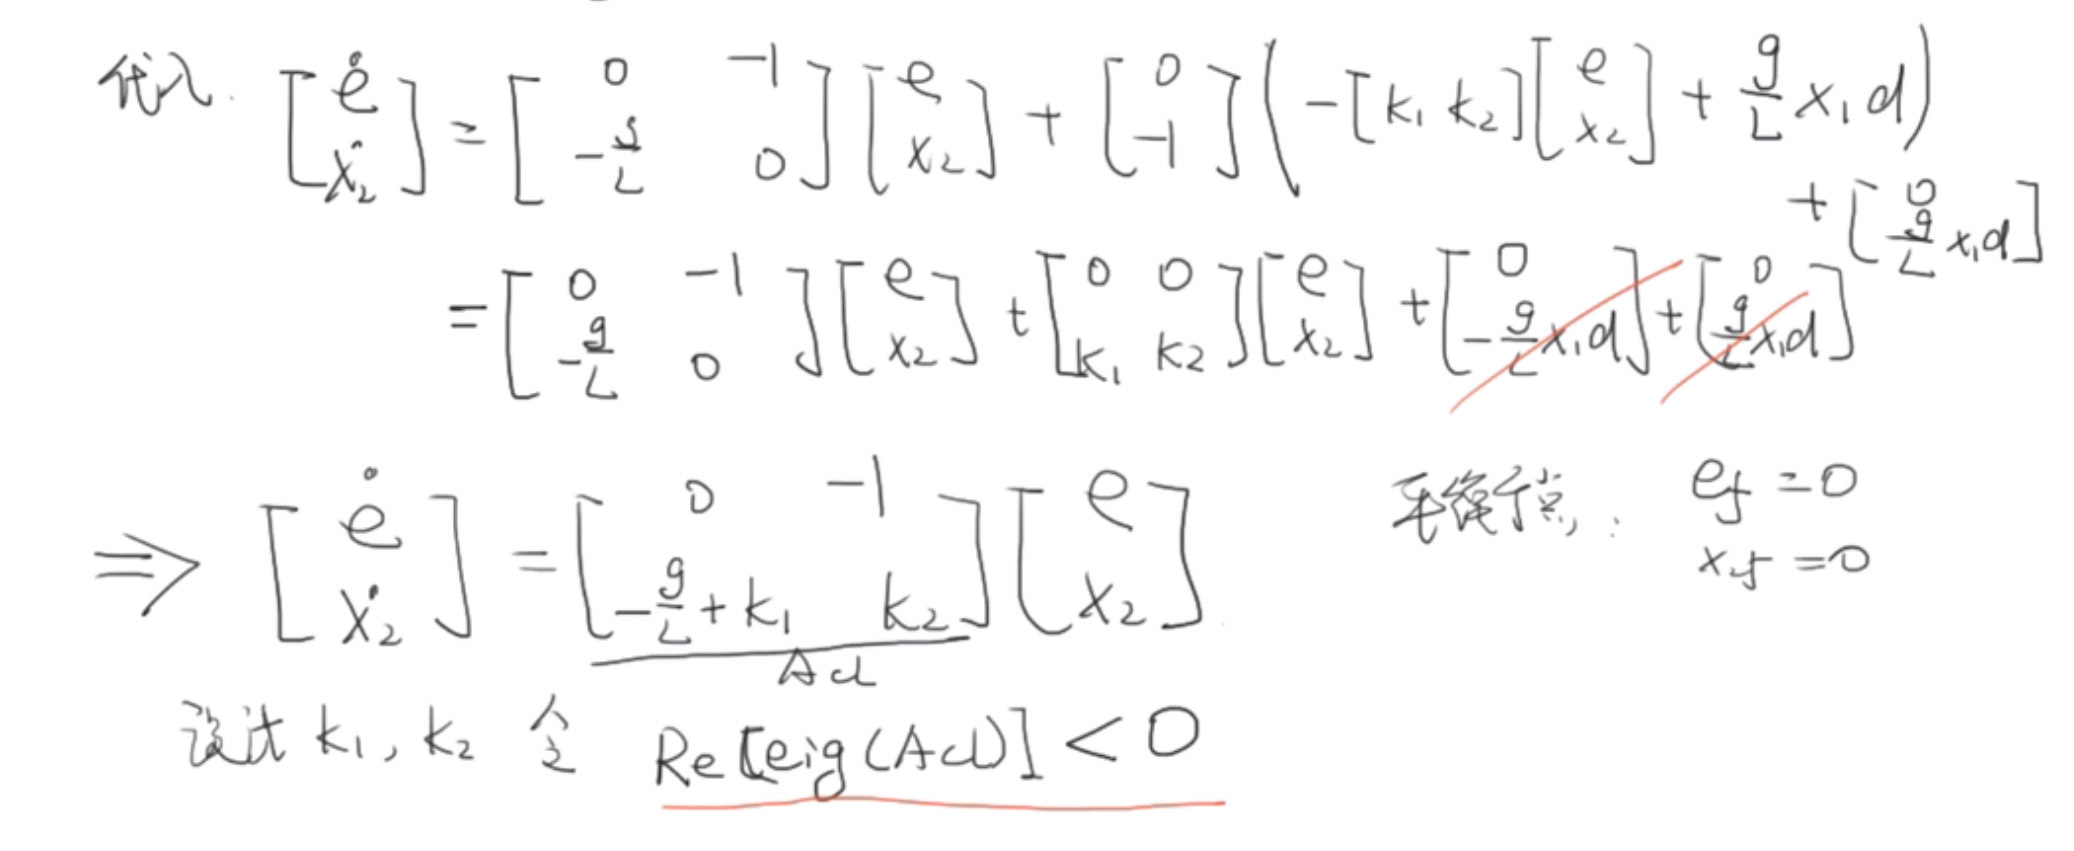 代入. [ė ẋ₂] = [0 -1; -g/L 0] [e x₂] + [0 -1] (-[k₁ k₂] [e x₂] + g/L x₁d) + [0 g/L x₁d]
= [0 -1; -g/L 0] [e x₂] + [0 0; k₁ k₂] [e x₂] + [0 -g/L x₁d] + [0 g/L x₁d]
⇒ [ė ẋ₂] = [0 -1; -g/L + k₁ k₂] [e x₂] 平衡点: e_f = 0
x₂f = 0
Acl
设计 k₁, k₂ 令 Re[eig(Acl)] < 0